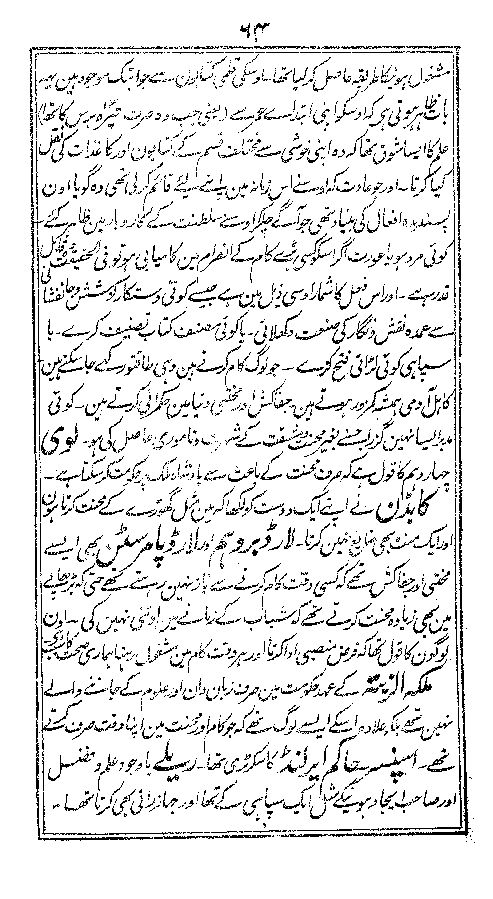 ۶۳
مشغول ہونیکا طریقہ حاصل کر لیا تھا۔ اوسکی قلمی کتابون سے جو ابتک موجود ہین یہہ
بات ظاہر ہوتی ہی کہ اوسکو اپنی ابتداے عمر سے (یعنی جب وہ صرف تیرہ برس کا تھا)
علم کا ایسا شوق تھا کہ وہ اپنی خوشی سے مختلف قسم کے کتابون اور کاغذات کی نقل
کیا کرتا۔ اور جو عادت کہ اوسنے اس زمانہ مین اپنے لیئے قائم کر لی تھی وہ گویا اون
پسندیدہ افعال کی بنیاد تھی جو آگے چلکر اوسنے سلطنت کے کاروبار مین ظاہر کئے
کوئی مرد ہو یا عورت اگر اسکو کسی بڑے کام کے انصرام مین کامیابی ہو تو فی الحقیقت قابل
قدر ہے۔ اور اس فعل کا شمار اوسی ذیل مین ہے جیسے کوئی دستکار کوشش و جانفشانی
سے عمدہ نقش و نگار کی صنعت دکھلائی۔ یا کوئی مصنف کتاب تصنیف کرے۔ یا
سپاہی کوئی لڑائی فتح کرے۔ جو لوگ کام کرتے ہین وہی طاقتور کہے جا سکتے ہین
کاہل آدمی ہمیشہ کمزور ہوتے ہین جفاکش اور محنتی دنیا مین حکمرانی کرتے ہین۔ کوئی
مدبر ایسا نہین گزرا جسنے بغیر محنت و مشقت کے شہرت و ناموری حاصل کی ہو۔ لوی
چہاردہم کا قول ہے کہ صرف محنت کے باعث سے بادشاہ ملک پر حکومت کر سکتا ہے۔
کابڈن نے اپنے ایک دوست کو لکھا کہ مین مثل گھوڑے کے محنت کرتا ہون
اور ایک منٹ بھی ضایع نہین کرتا۔ لارڈ بروہم اور لارڈ پامرسٹن بھی ایسے
محنتی اور جفاکش تھے کہ کسی وقت کام کرنے سے باز نہین رہتے تھے حتی کہ بڑھاپے
مین بھی زیادہ محنت کرتے تھے کہ شباب کے زمانے مین اوتنی نہین کی۔ اون
لوگون کا قول تھا کہ فرض منصبی ادا کرنا اور ہر وقت کام مین مشغول رہنا ہماری صحت کا
ملکہ الزبتھ کے عہد حکومت مین صرف زبان دان اور علوم کے جاننے والے
نہین تھے بلکہ علاوہ اسکے ایسے لوگ تھے کہ جو کام اور محنت مین اپنا وقت صرف کرتے
تھے۔ اسپنسر حاکم ایرلنڈ کا سکرٹری تھا۔ ریلے باوجود علم و فضل
اور صاحب ایجاد ہونیکے مثل ایک سپاہی کے تھا اور جہازرانی بھی کرتا تھا۔